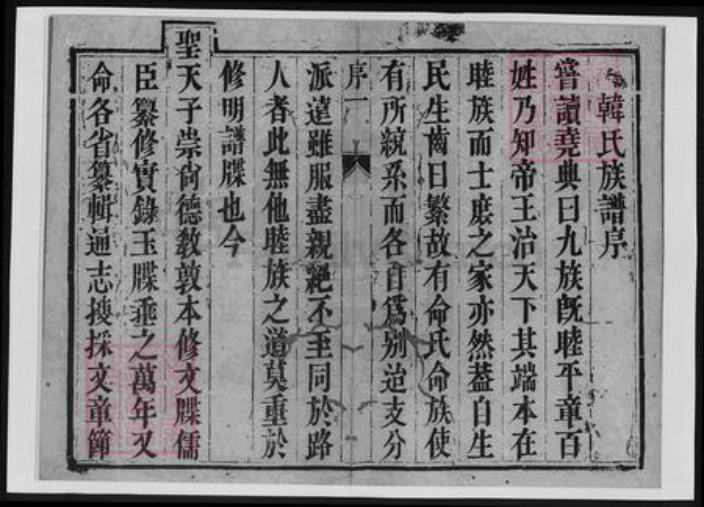 韓氏族譜序
嘗讀堯典曰九族既睦平章百
姓乃知帝王治天下其端本在
睦族而士庶之家亦然葢自生
民生齒日繁故有命氏命族使
有所統系而各自爲别迨支分
序一
派遠雖服盡親絕不至同於路
人者此無他睦族之道莫重於
修明譜牒也今
聖天子崇尙德敎敦本修文牒儒
臣纂修實錄玉牒垂之萬年又
命各省纂輯通志搜採文章節